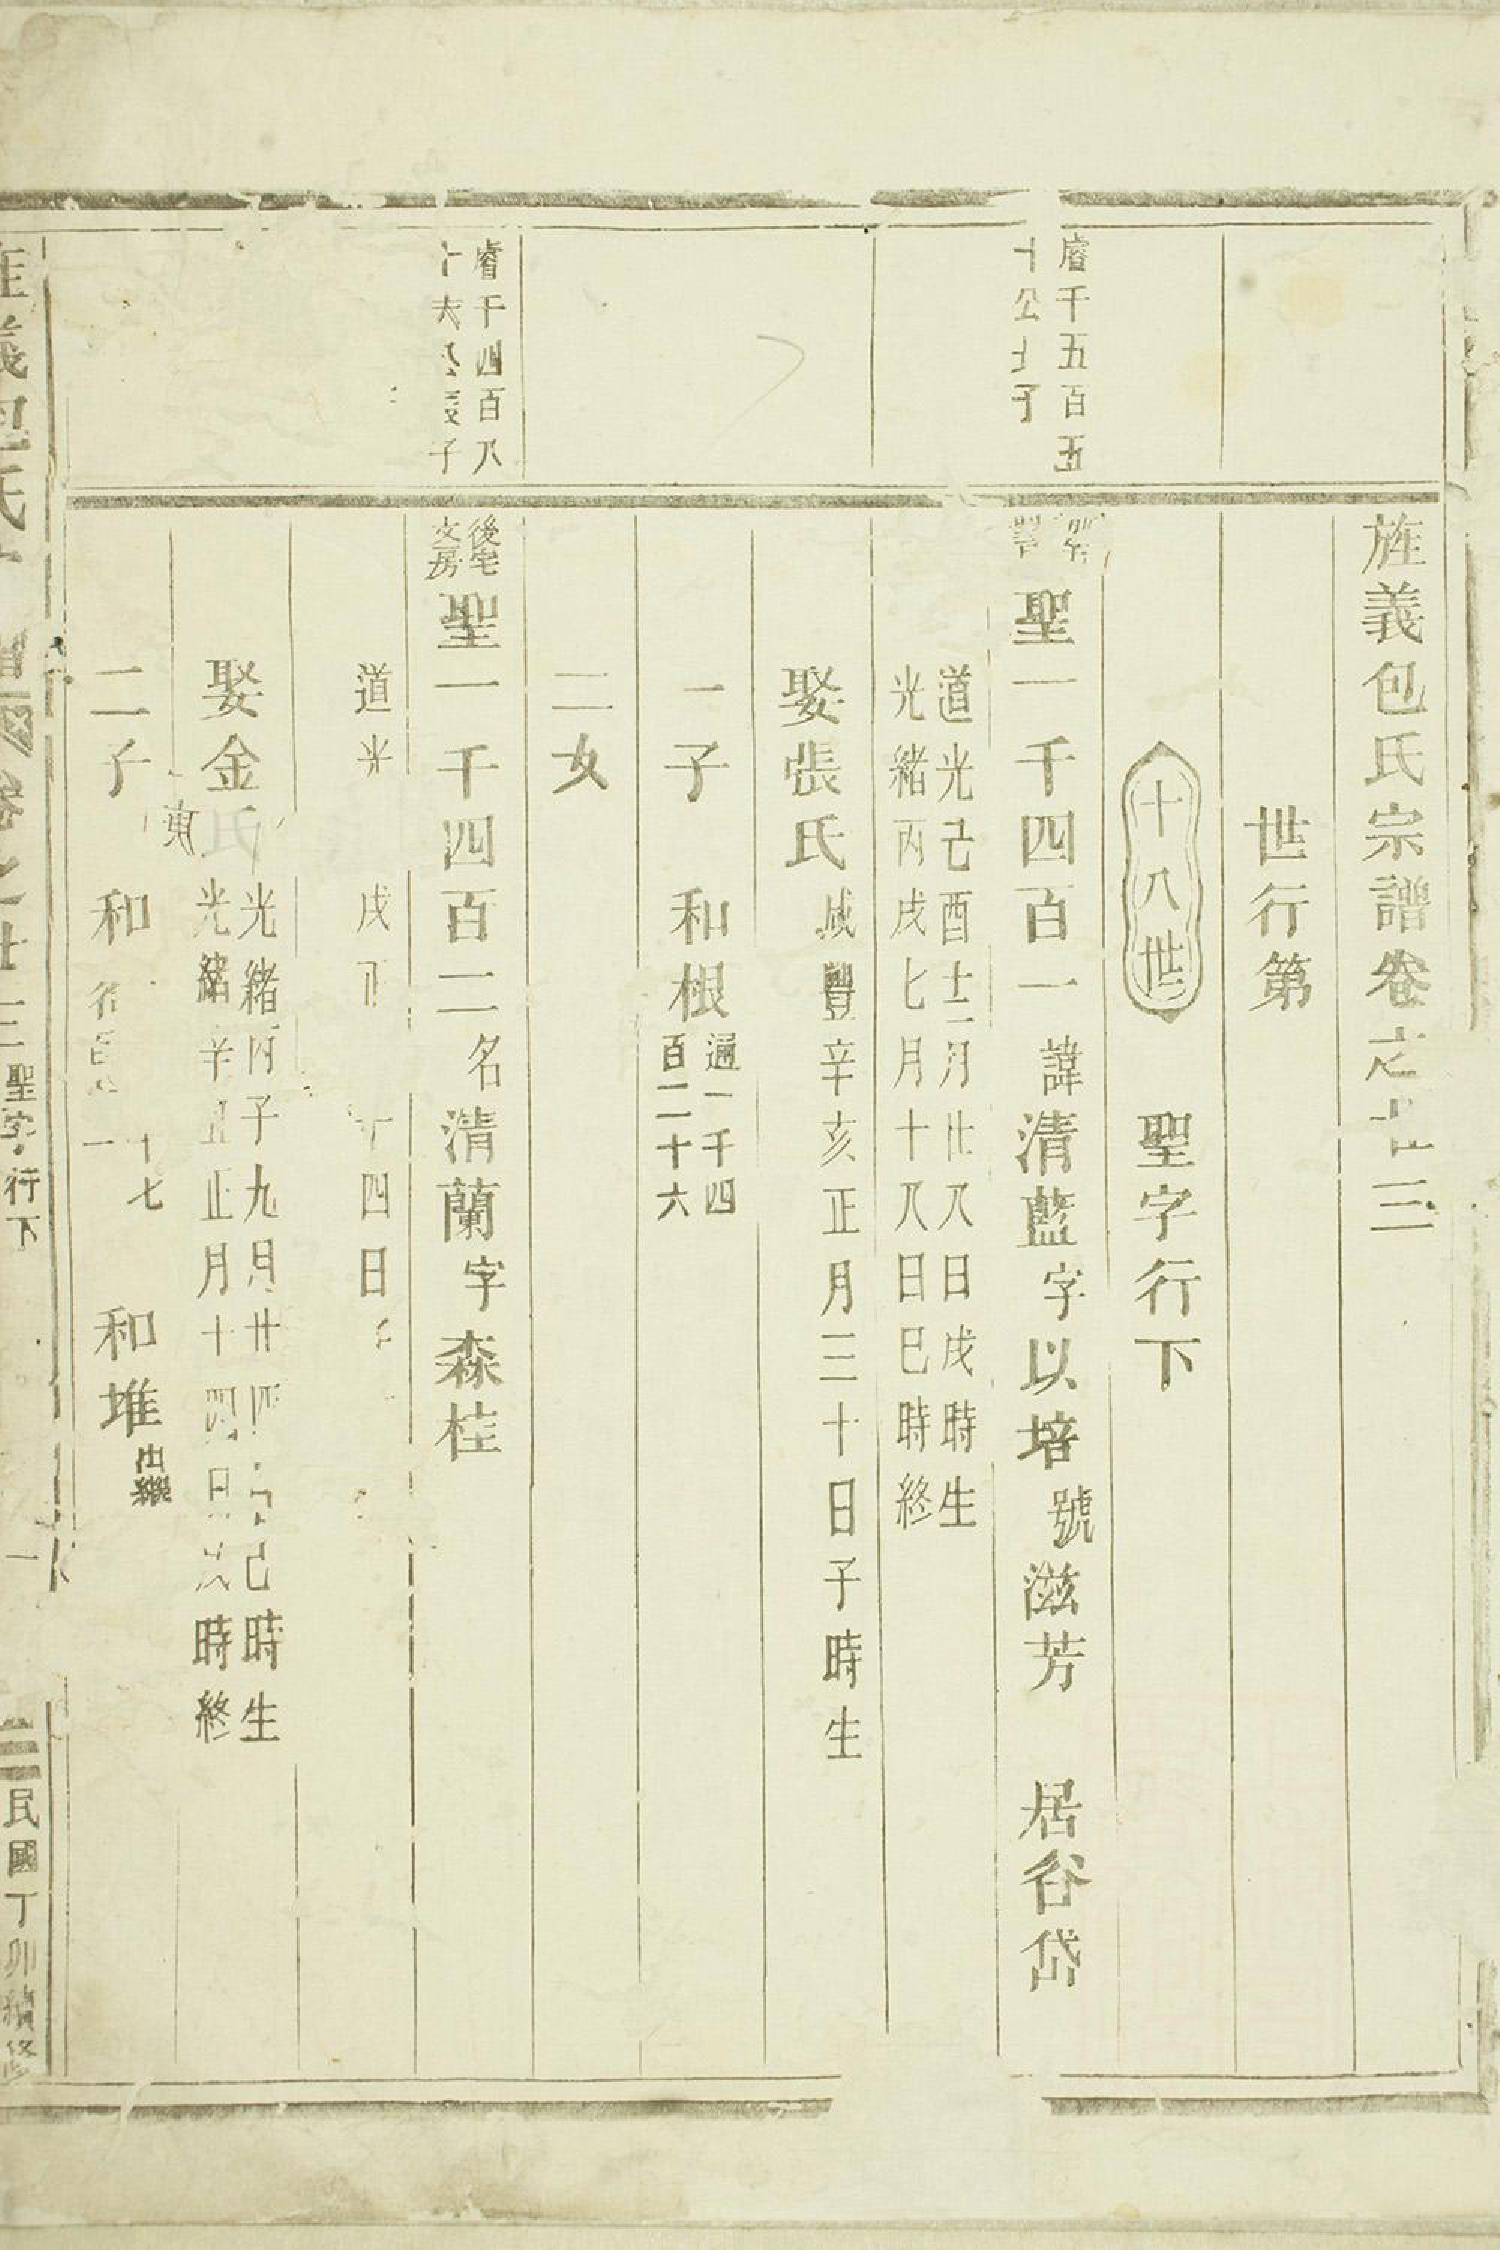 旌義包氏宗譜卷之廿三
世行第
十八世
聖字行下
睿千五百五
十公長子
聖一千四百一諱清藍字以培號滋芳 居谷岱
道光己酉十二月廿八日戌時生
光緒丙戌七月十八日巳時終
娶張氏咸豐辛亥正月三十日子時生
一子 和根通一千四
百二十六
二女
睿千四百八
十六公長子
後宅
文房
聖一千四百二名清蘭字森桂
道光 戌正 十四日
娶金氏
光緒丙子九月廿四 己時生
光緒辛丑正月十四日 時終
二子 和
十七
和堆出繼
旌義包氏宗譜 卷之廿三 聖字行下 一 民國丁卯續修